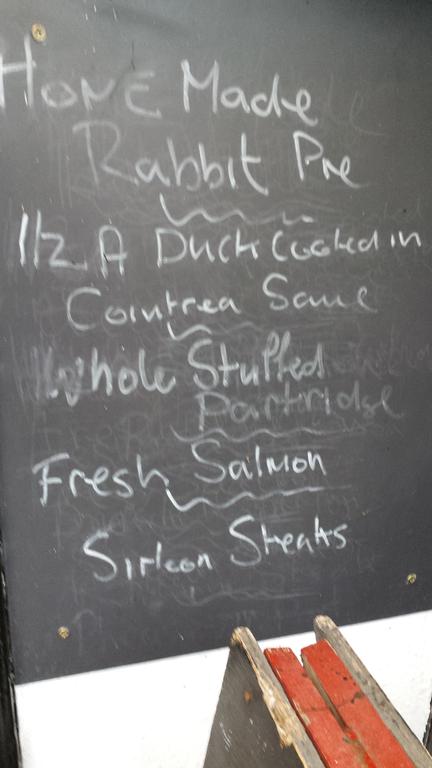 Home Made
Rabbit Pie
1/2 A Duck Cooked in
Cointrea Sauce
Whole Stuffed
Partridge
Fresh Salmon
Sirloon Steaks